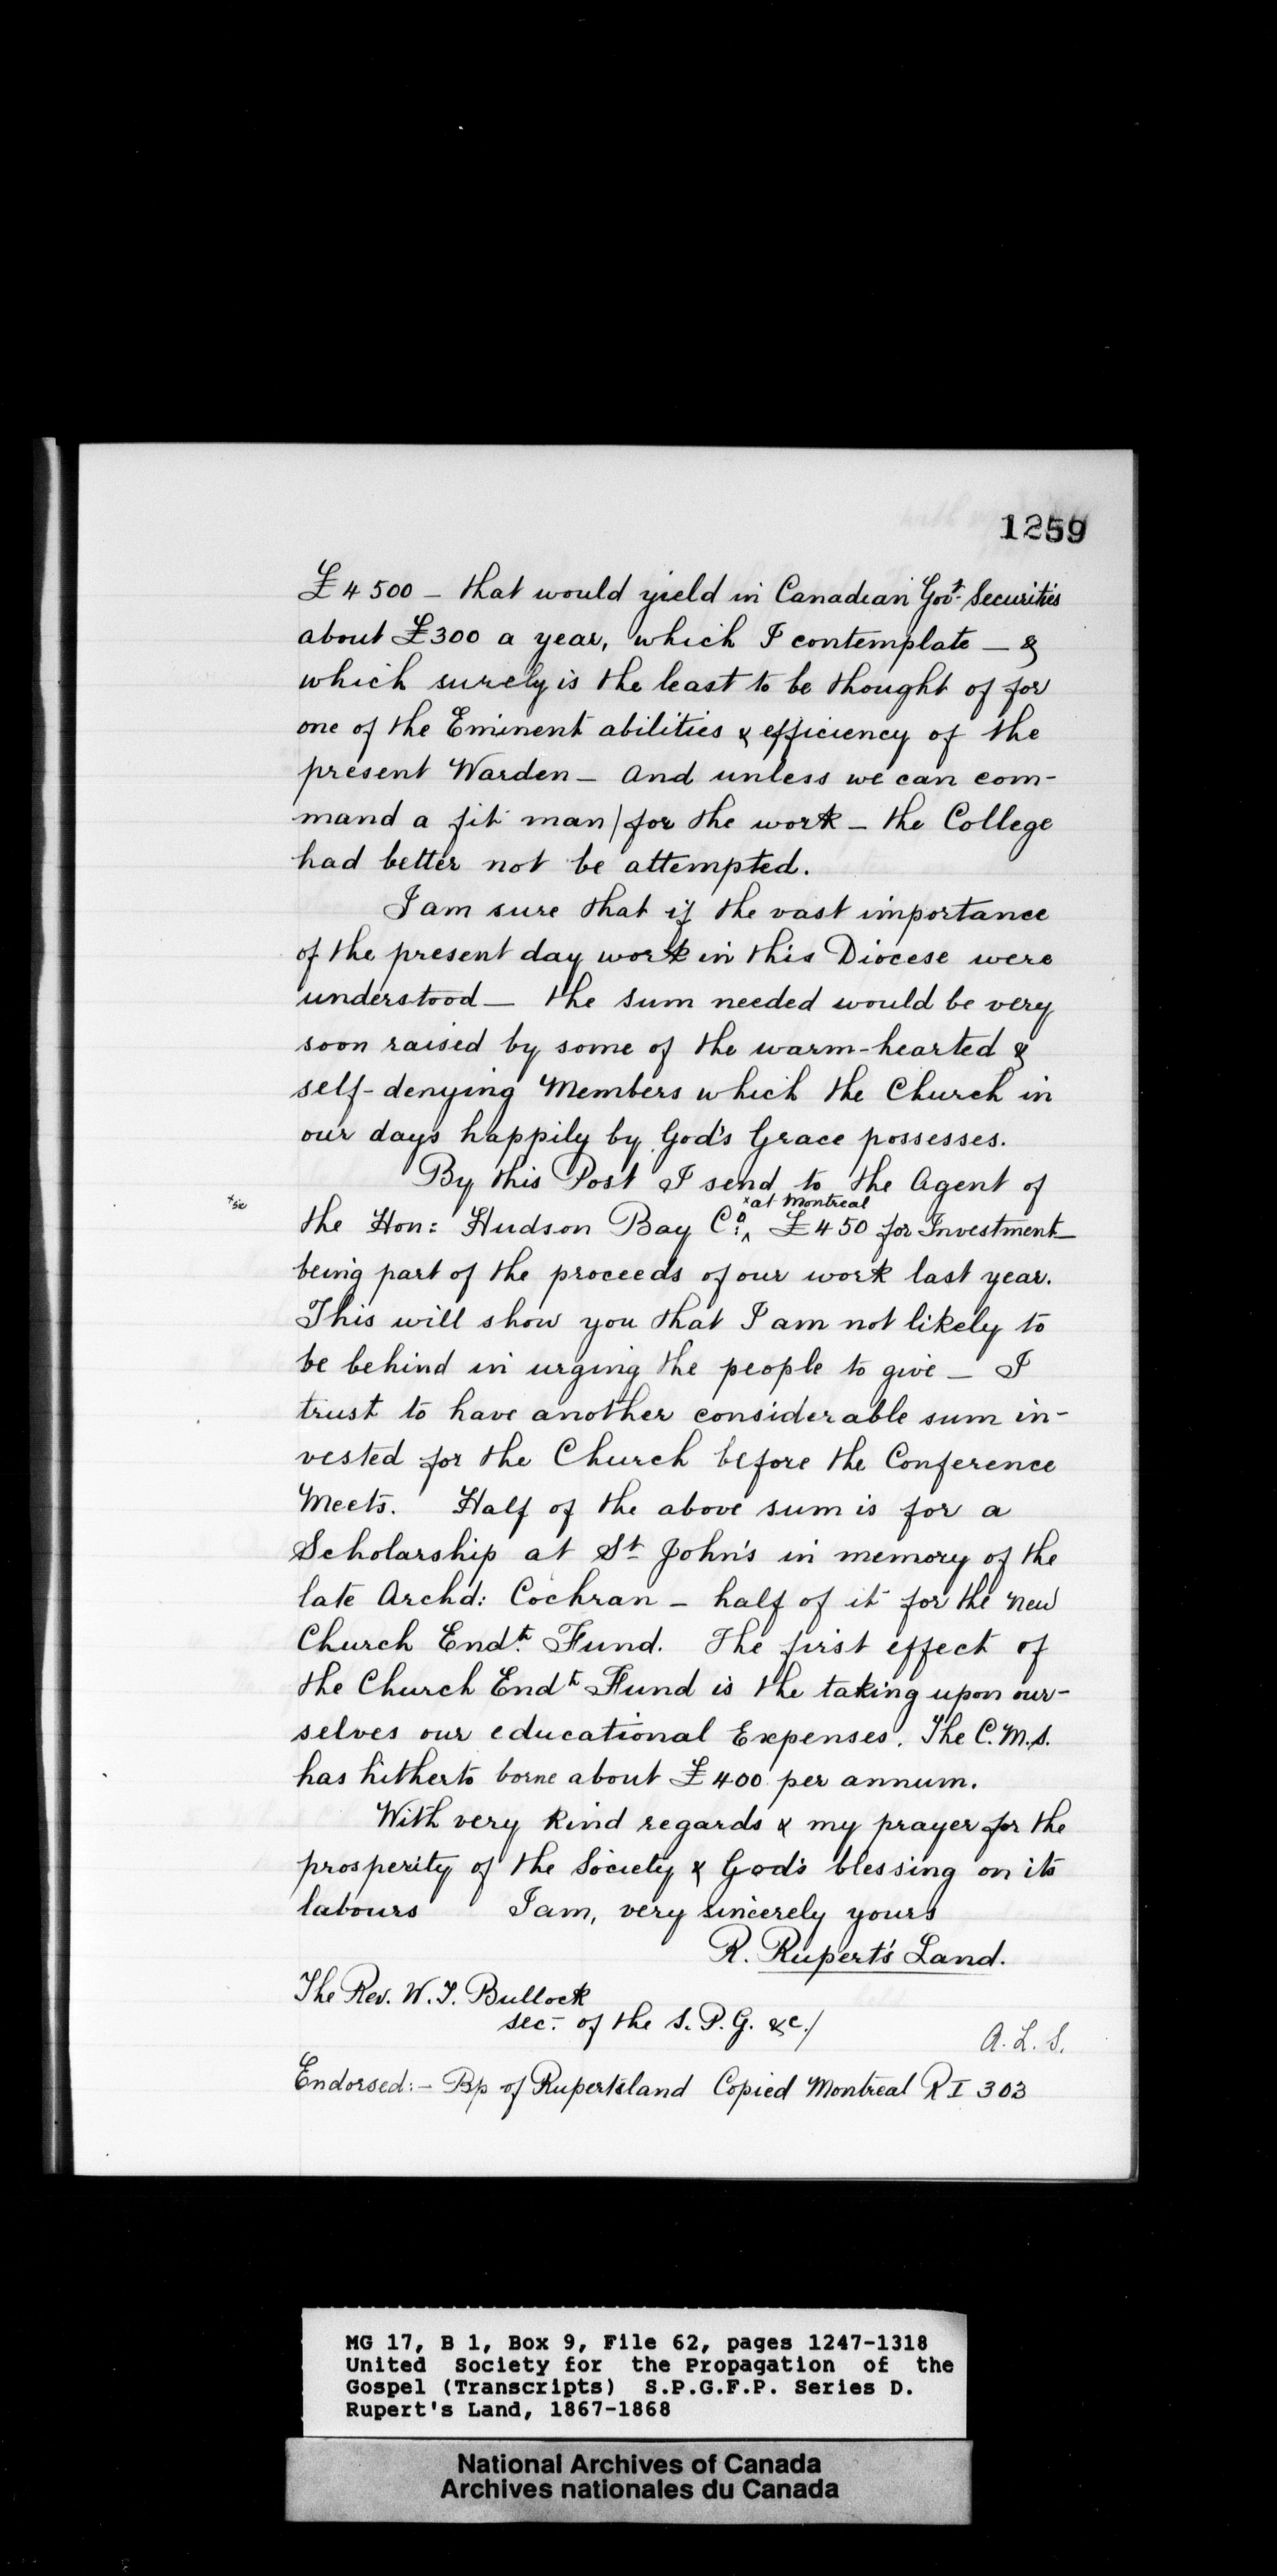 1259
£4500 – that would yield in Canadian Govt. Securities
about £300 a year, which I contemplate – &
which surely is the least to be thought of for
one of the Eminent abilities & efficiency of the
present Warden – And unless we can com-
mand a fit man/for the work – the College
had better not be attempted.
I am sure that if the vast importance
of the present day work in this Diocese were
understood – the sum needed would be very
soon raised by some of the warm-hearted &
self-denying Members which the Church in
our days happily by God's Grace possesses.
By this Post I send to the Agent of
x at Montreal
x sic
the Hon: Hudson Bay Co:^ £450 for Investment –
being part of the proceeds of our work last year.
This will show you that I am not likely to
be behind in urging the people to give – I
trust to have another considerable sum in-
vested for the Church before the Conference
Meets. Half of the above sum is for a
Scholarship at St John's in memory of the
late Archd: Cochran – half of it for the new
Church Endt. Fund. The first effect of
the Church Endt Fund is the taking upon our-
selves our educational Expenses. The C.M.S.
has hitherto borne about £400 per annum.
With very kind regards & my prayer for the
prosperity of the Society & God's blessing on its
labours I am, very sincerely yours
R. Rupert's Land.
The Rev. W. T. Bullock
sec. of the S.P.G. &c./
A.L.S.
Endorsed:– Bp of Rupertsland Copied Montreal R I 303
MG 17, B 1, Box 9, File 62, pages 1247-1318
United Society for the Propagation of the
Gospel (Transcripts) S.P.G.F.P. Series D.
Rupert's Land, 1867-1868
National Archives of Canada
Archives nationales du Canada